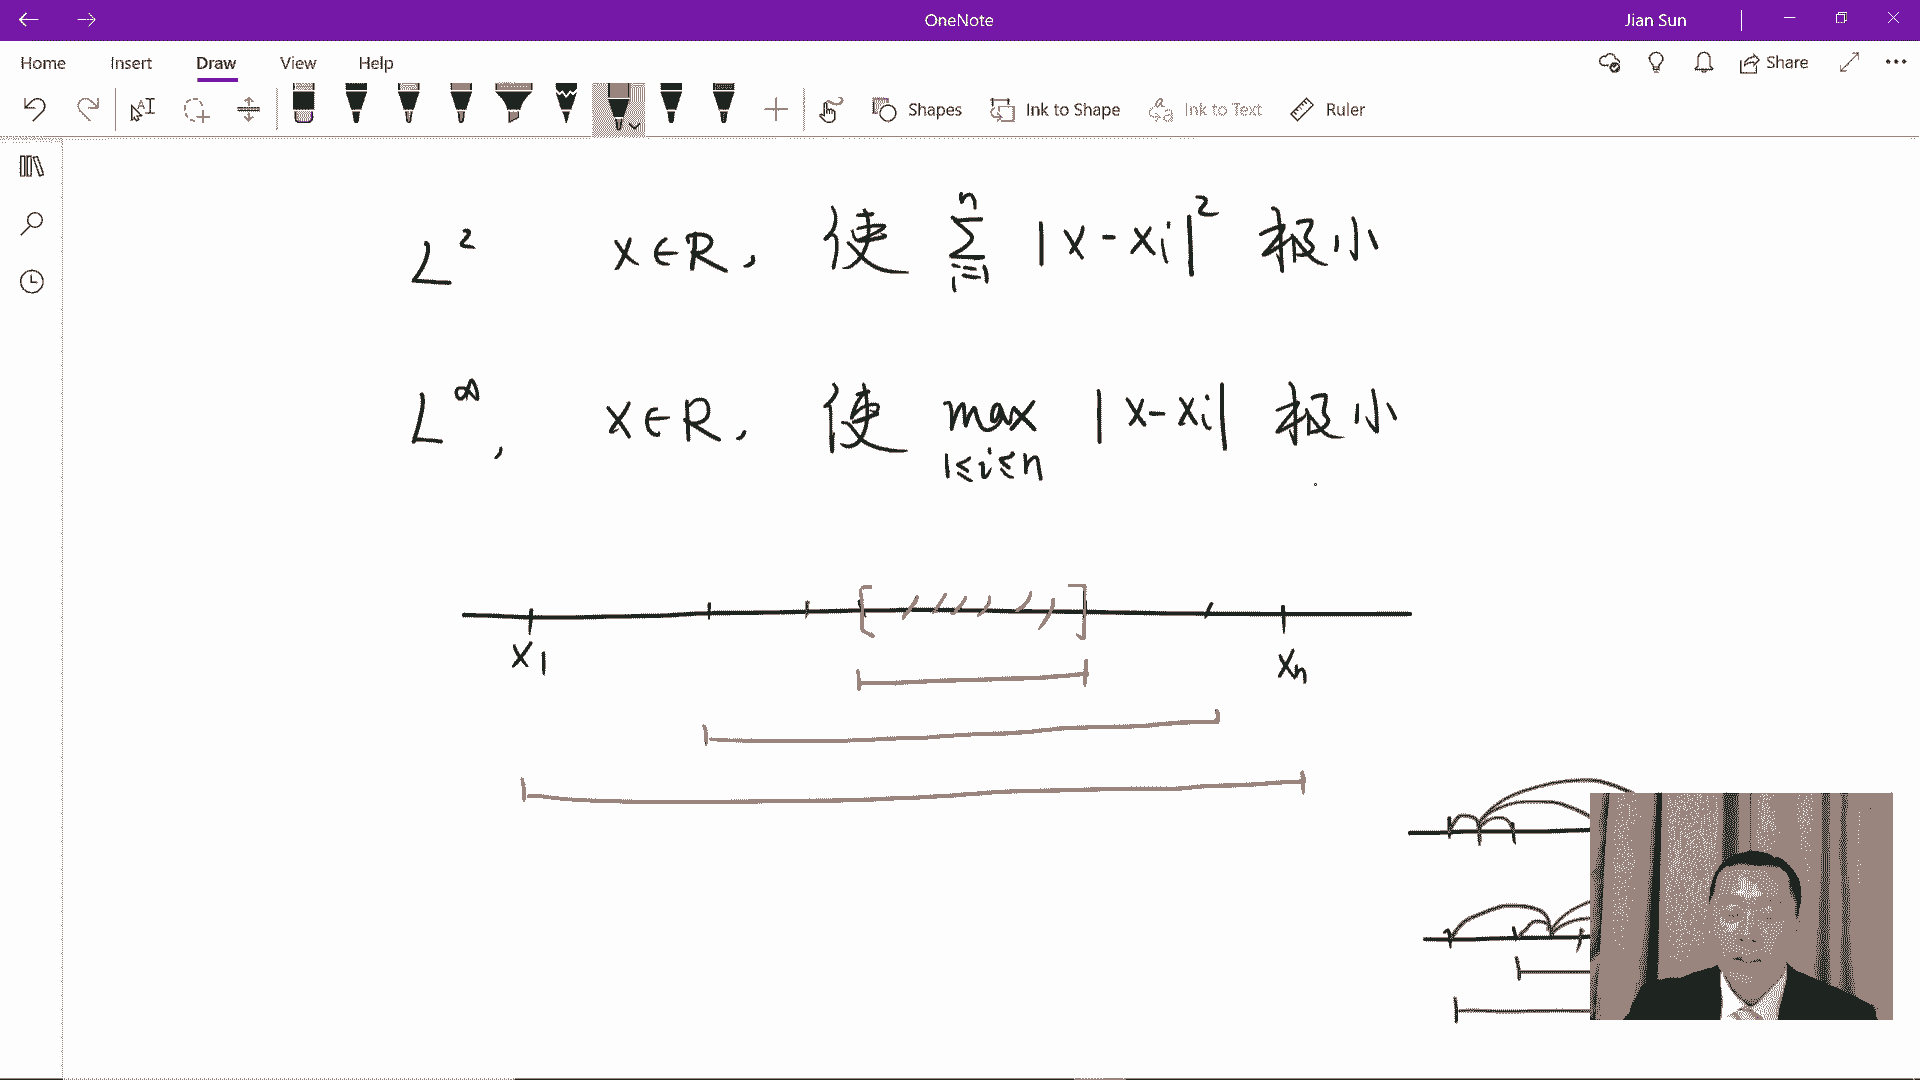 OneNote
Jian Sun
Home Insert Draw View Help
Share
Shapes Ink to Shape Ink to Text Ruler
L² x∈R, 使 ∑ⁿᵢ₌₁ |x-xi|² 极小
L^∞, x∈R, 使 max 1≤i≤n |x-xi| 极小
x₁ xₙ